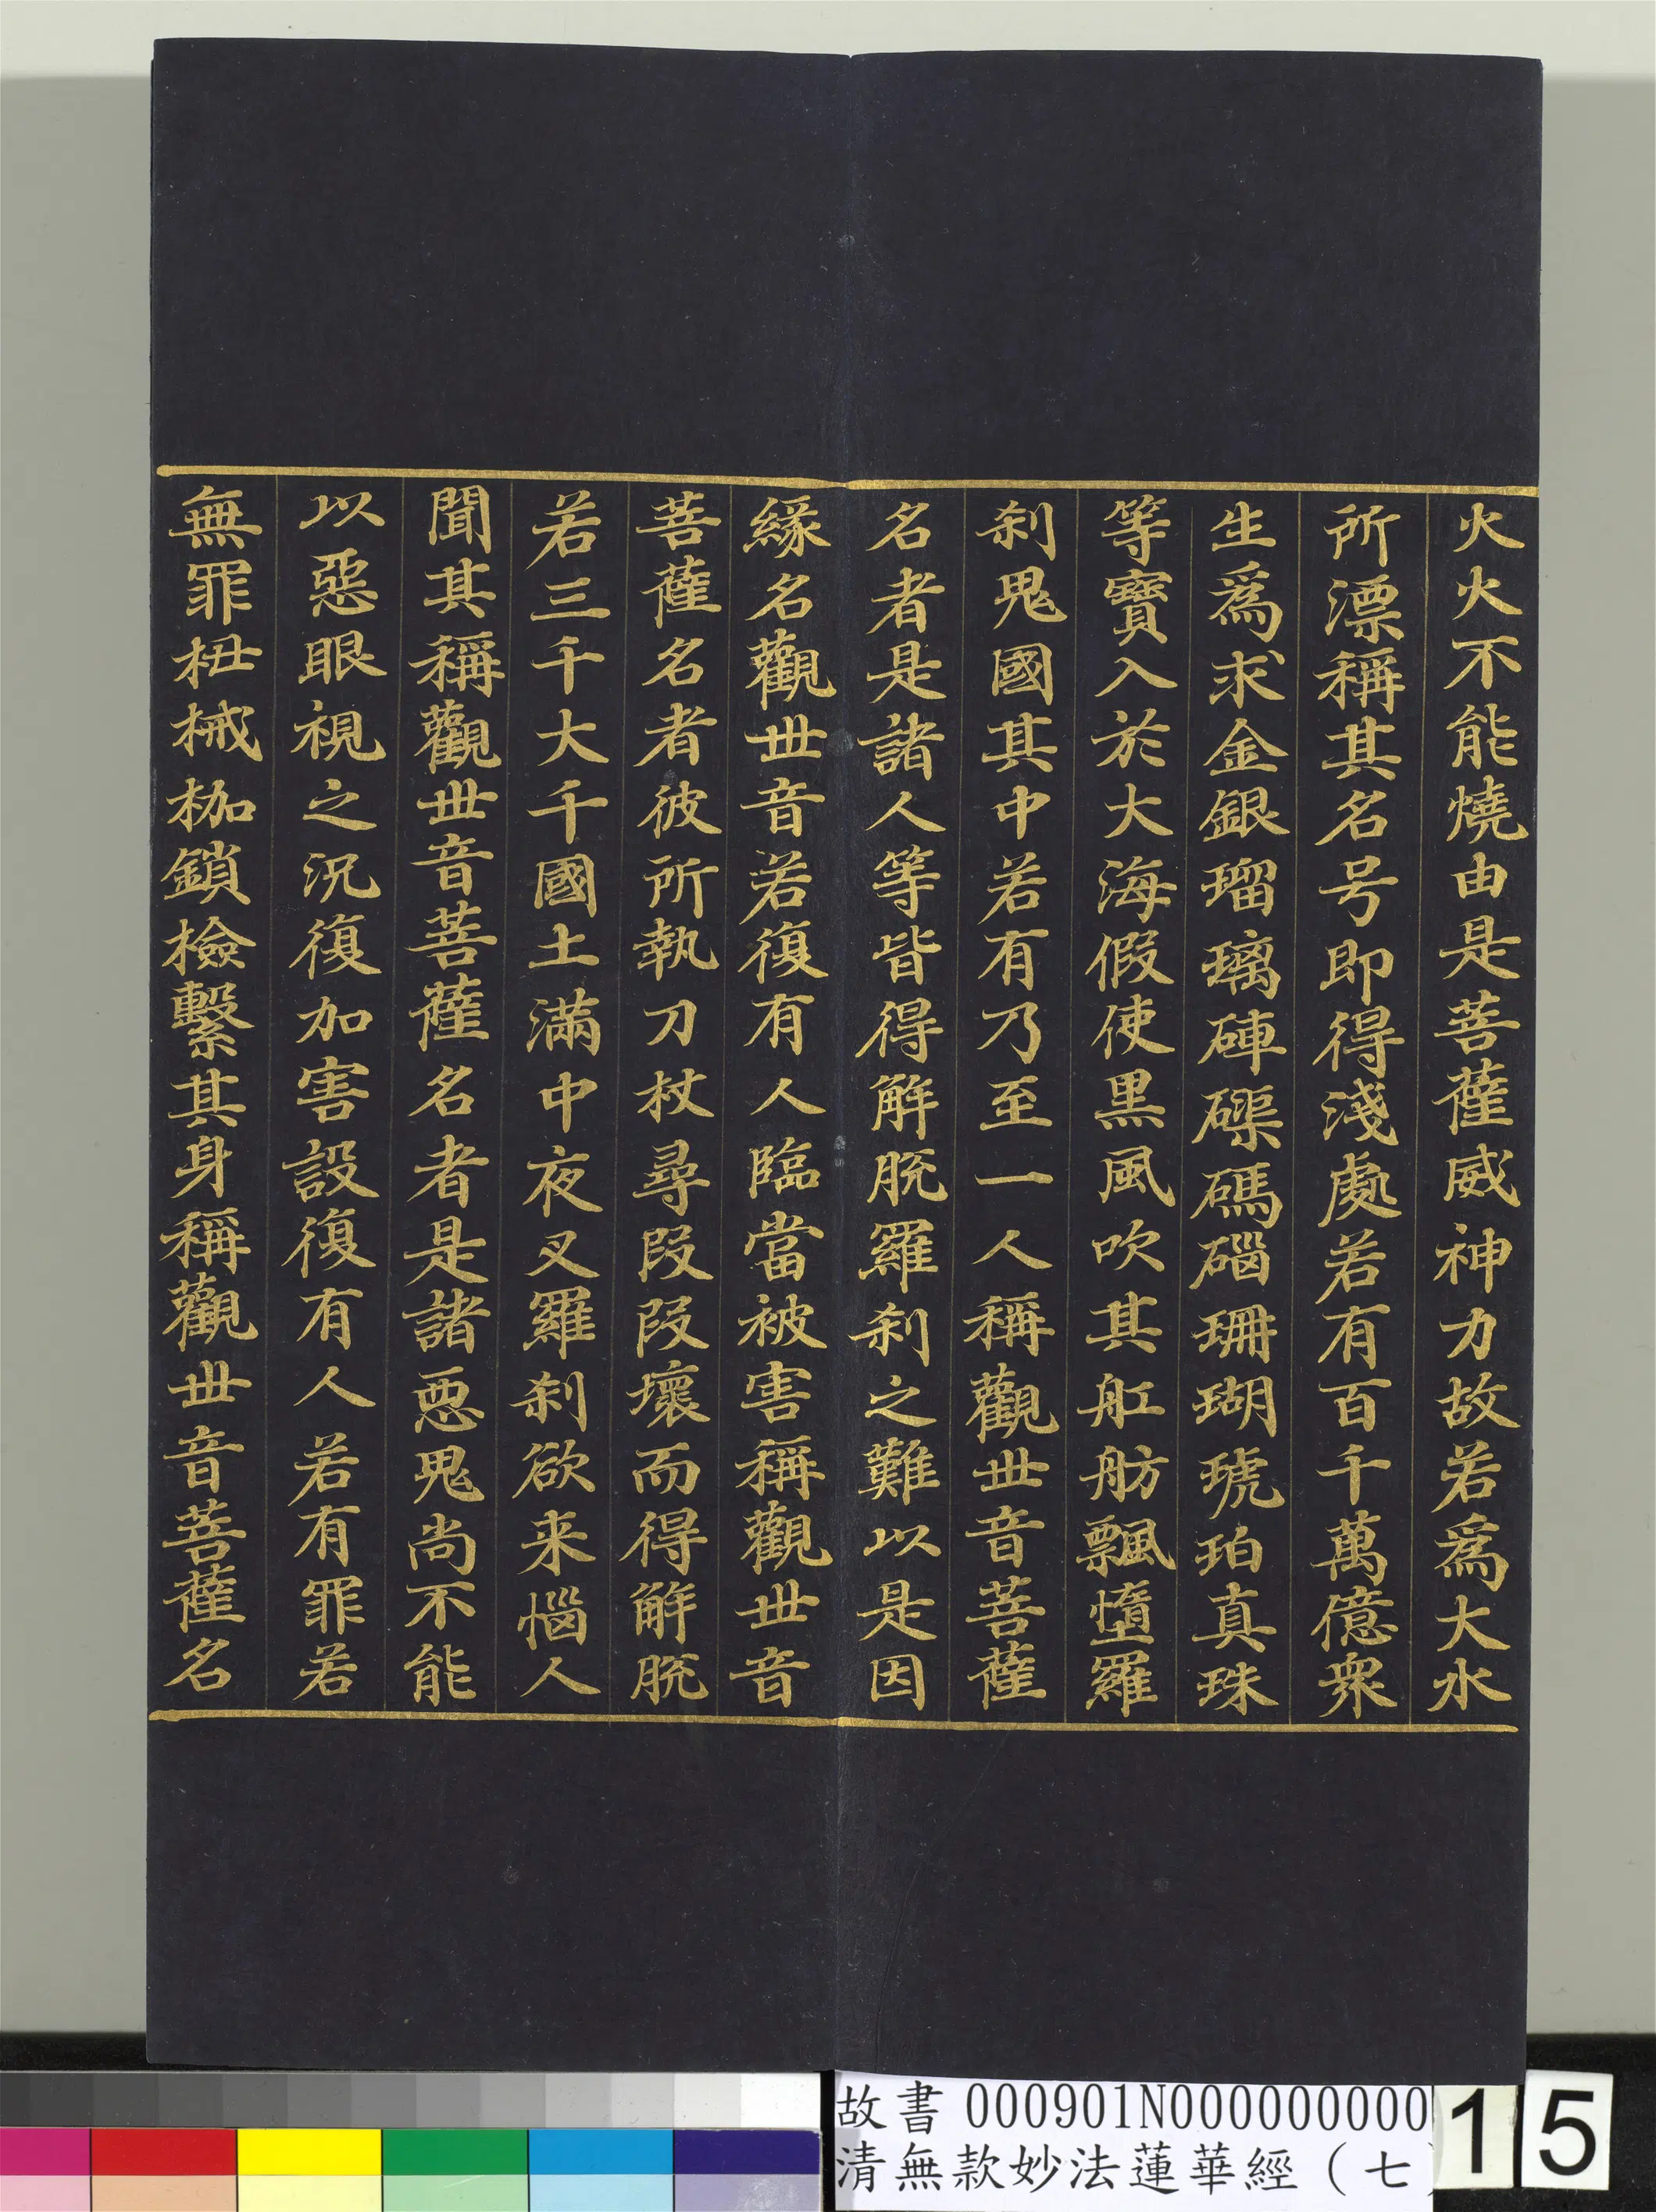 火火不能燒由是菩薩威神力故若爲大水
所漂稱其名号即得淺處若有百千萬億衆
生爲求金銀瑠璃硨磲碼碯珊瑚琥珀真珠
等寶入於大海假使黒風吹其舡舫飄墮羅
刹鬼國其中若有乃至一人稱觀世音菩薩
名者是諸人等皆得解脫羅刹之難以是因
緣名觀世音若復有人臨當被害稱觀世音
菩薩名者彼所執刀杖尋段段壞而得解脫
若三千大千國土滿中夜叉羅刹欲来惱人
聞其稱觀世音菩薩名者是諸惡鬼尚不能
以惡眼視之況復加害設復有人若有罪若
無罪杻械枷鎖檢繫其身稱觀世音菩薩名
故書 000901N000000000
清無款妙法蓮華經（七
15